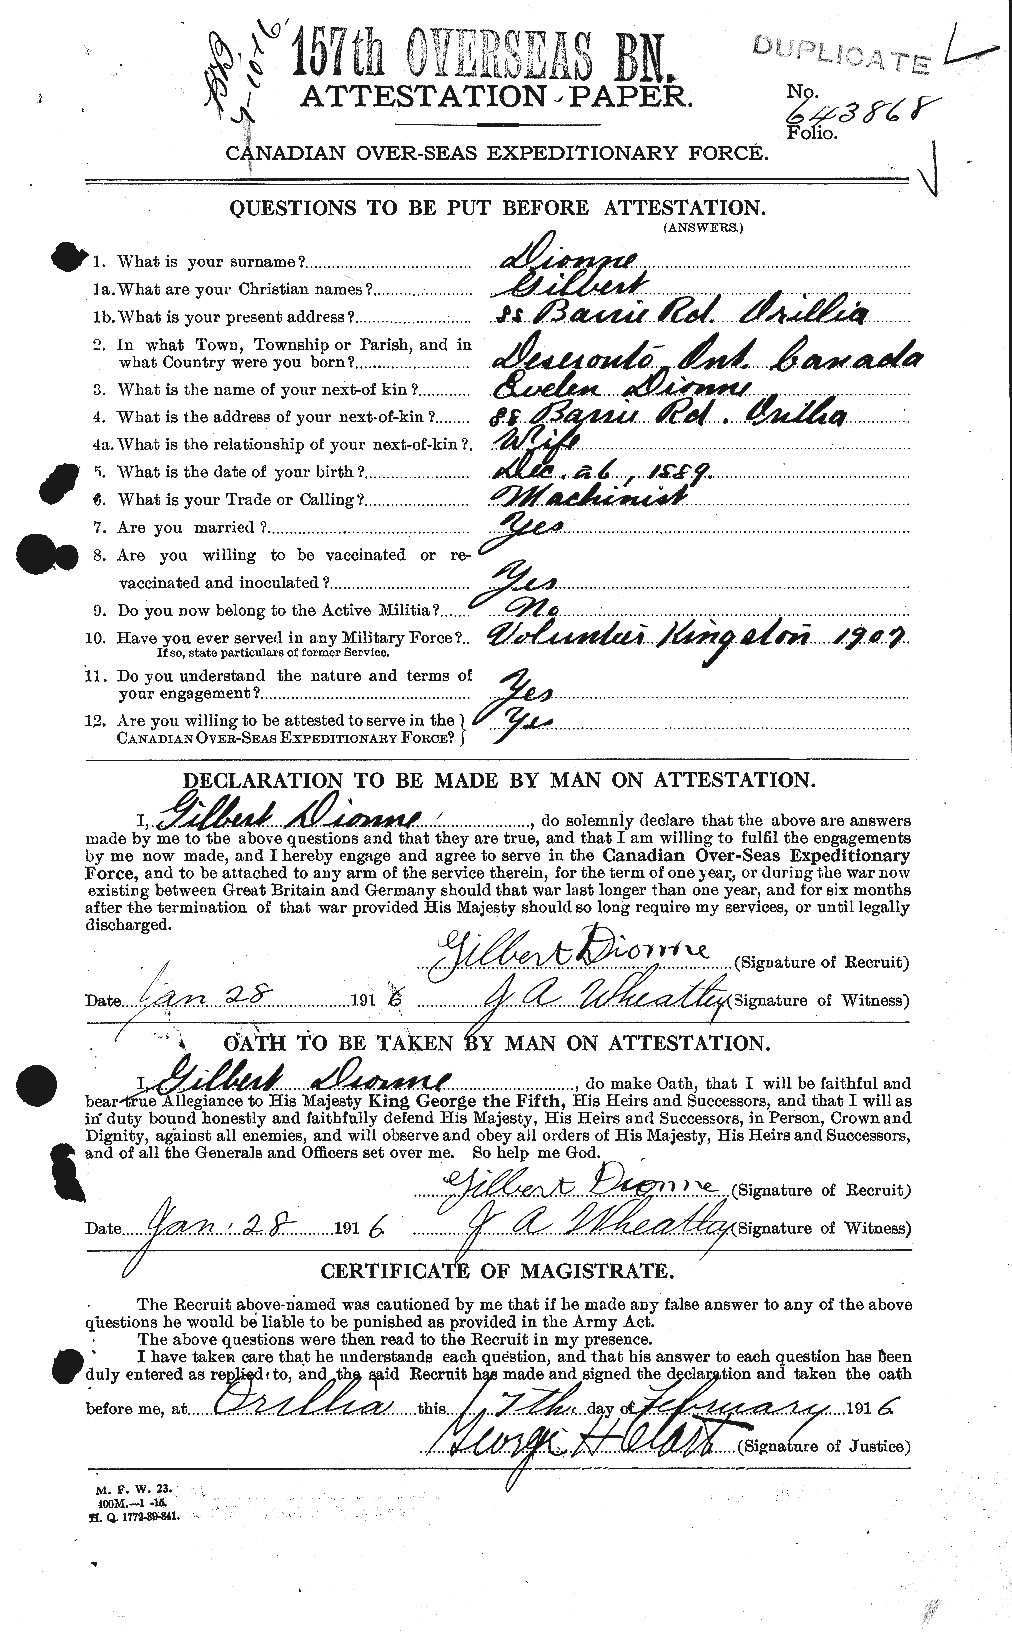 157th OVERSEAS BN.
DUPLICATE
7-10-16
ATTESTATION PAPER.
No. 643868
Folio.
CANADIAN OVER-SEAS EXPEDITIONARY FORCE.
QUESTIONS TO BE PUT BEFORE ATTESTATION.
(ANSWERS.)
1. What is your surname? Dionne
1a. What are your Christian names? Gilbert
1b. What is your present address? 88 Barrie Rd. Orillia
2. In what Town, Township or Parish, and in
what Country were you born? Deseronto Ont. Canada
3. What is the name of your next-of kin? Evelen Dionne
4. What is the address of your next-of-kin? 88 Barrie Rd. Orillia
4a. What is the relationship of your next-of-kin? Wife
5. What is the date of your birth? Dec. 26, 1889.
6. What is your Trade or Calling? Machinist
7. Are you married? Yes
8. Are you willing to be vaccinated or re-
vaccinated and inoculated? Yes
9. Do you now belong to the Active Militia? No
10. Have you ever served in any Military Force? Volunteer Kingston 1907
If so, state particulars of former Service.
11. Do you understand the nature and terms of
your engagement? Yes
12. Are you willing to be attested to serve in the } Yes
CANADIAN OVER-SEAS EXPEDITIONARY FORCE? }
DECLARATION TO BE MADE BY MAN ON ATTESTATION.
I, Gilbert Dionne, do solemnly declare that the above are answers
made by me to the above questions and that they are true, and that I am willing to fulfil the engagements
by me now made, and I hereby engage and agree to serve in the Canadian Over-Seas Expeditionary
Force, and to be attached to any arm of the service therein, for the term of one year, or during the war now
existing between Great Britain and Germany should that war last longer than one year, and for six months
after the termination of that war provided His Majesty should so long require my services, or until legally
discharged.
Gilbert Dionne (Signature of Recruit)
Date Jan 28 1916 J A Wheatley (Signature of Witness)
OATH TO BE TAKEN BY MAN ON ATTESTATION.
I, Gilbert Dionne, do make Oath, that I will be faithful and
bear true Allegiance to His Majesty King George the Fifth, His Heirs and Successors, and that I will as
in duty bound honestly and faithfully defend His Majesty, His Heirs and Successors, in Person, Crown and
Dignity, against all enemies, and will observe and obey all orders of His Majesty, His Heirs and Successors,
and of all the Generals and Officers set over me. So help me God.
Gilbert Dionne (Signature of Recruit)
Date Jan. 28 1916 J A Wheatley (Signature of Witness)
CERTIFICATE OF MAGISTRATE.
The Recruit above-named was cautioned by me that if he made any false answer to any of the above
questions he would be liable to be punished as provided in the Army Act.
The above questions were then read to the Recruit in my presence.
I have taken care that he understands each question, and that his answer to each question has been
duly entered as replied to, and the said Recruit has made and signed the declaration and taken the oath
before me, at Orillia this 17th day of February 1916
George H Clark (Signature of Justice)
M. F. W. 23.
400M.—1-15.
H. Q. 1772-39-841.